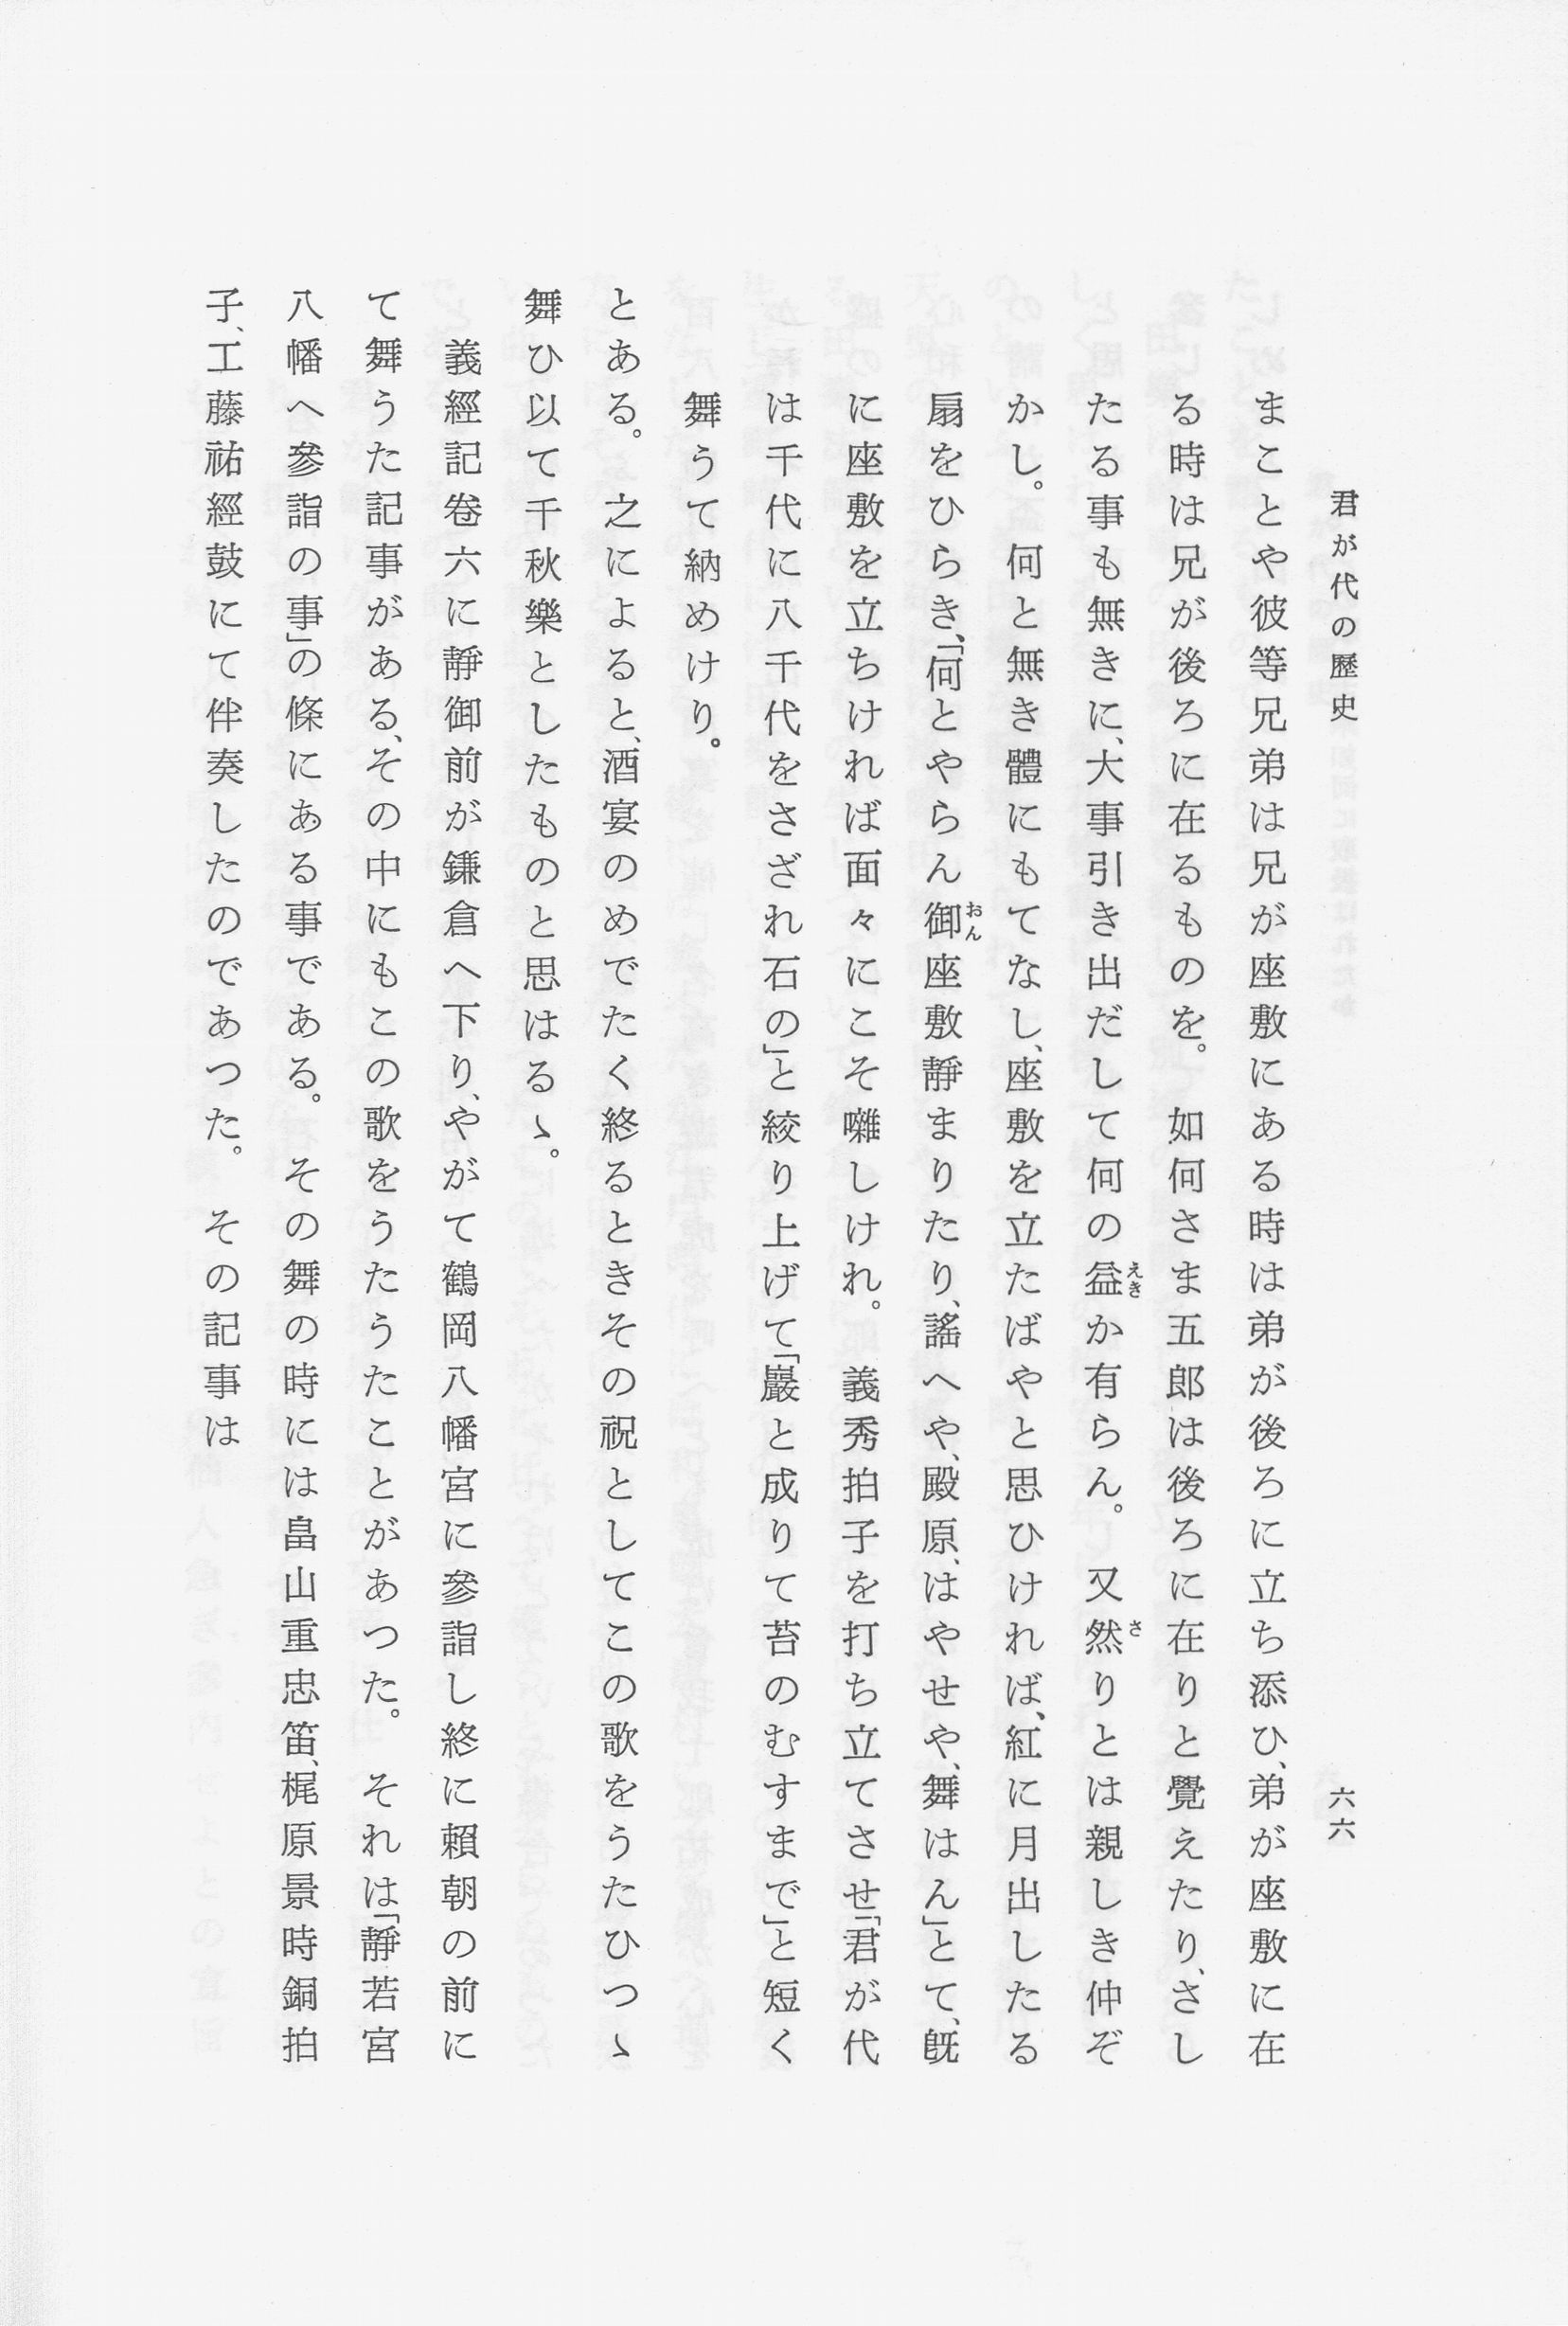 君が代の歷史
六六
まことや彼等兄弟は兄が座敷にある時は弟が後ろに立ち添ひ、弟が座敷に在
る時は兄が後ろに在るものを。如何さま五郎は後ろに在りと覺えたり、さし
たる事も無きに、大事引き出だして何の益か有らん。又然りとは親しき仲ぞ
かし。何と無き體にもてなし、座敷を立たばやと思ひければ、紅に月出したる
扇をひらき、「何とやらん御座敷靜まりたり、謠へや、殿原、はやせや、舞はん」とて、旣
に座敷を立ちければ面々にこそ囃しけれ。義秀拍子を打ち立てさせ「君が代
は千代に八千代をさざれ石の」と絞り上げて「巖と成りて苔のむすまで」と短く
舞うて納めけり。
とある。之によると、酒宴のめでたく終るときその祝としてこの歌をうたひつゝ
舞ひ以て千秋樂としたものと思はるゝ。
義經記卷六に靜御前が鎌倉へ下り、やがて鶴岡八幡宮に參詣し終に賴朝の前に
て舞うた記事がある、その中にもこの歌をうたうたことがあつた。それは「靜若宮
八幡へ參詣の事」の條にある事である。その舞の時には畠山重忠笛、梶原景時銅拍
子、工藤祐經鼓にて伴奏したのであつた。その記事は